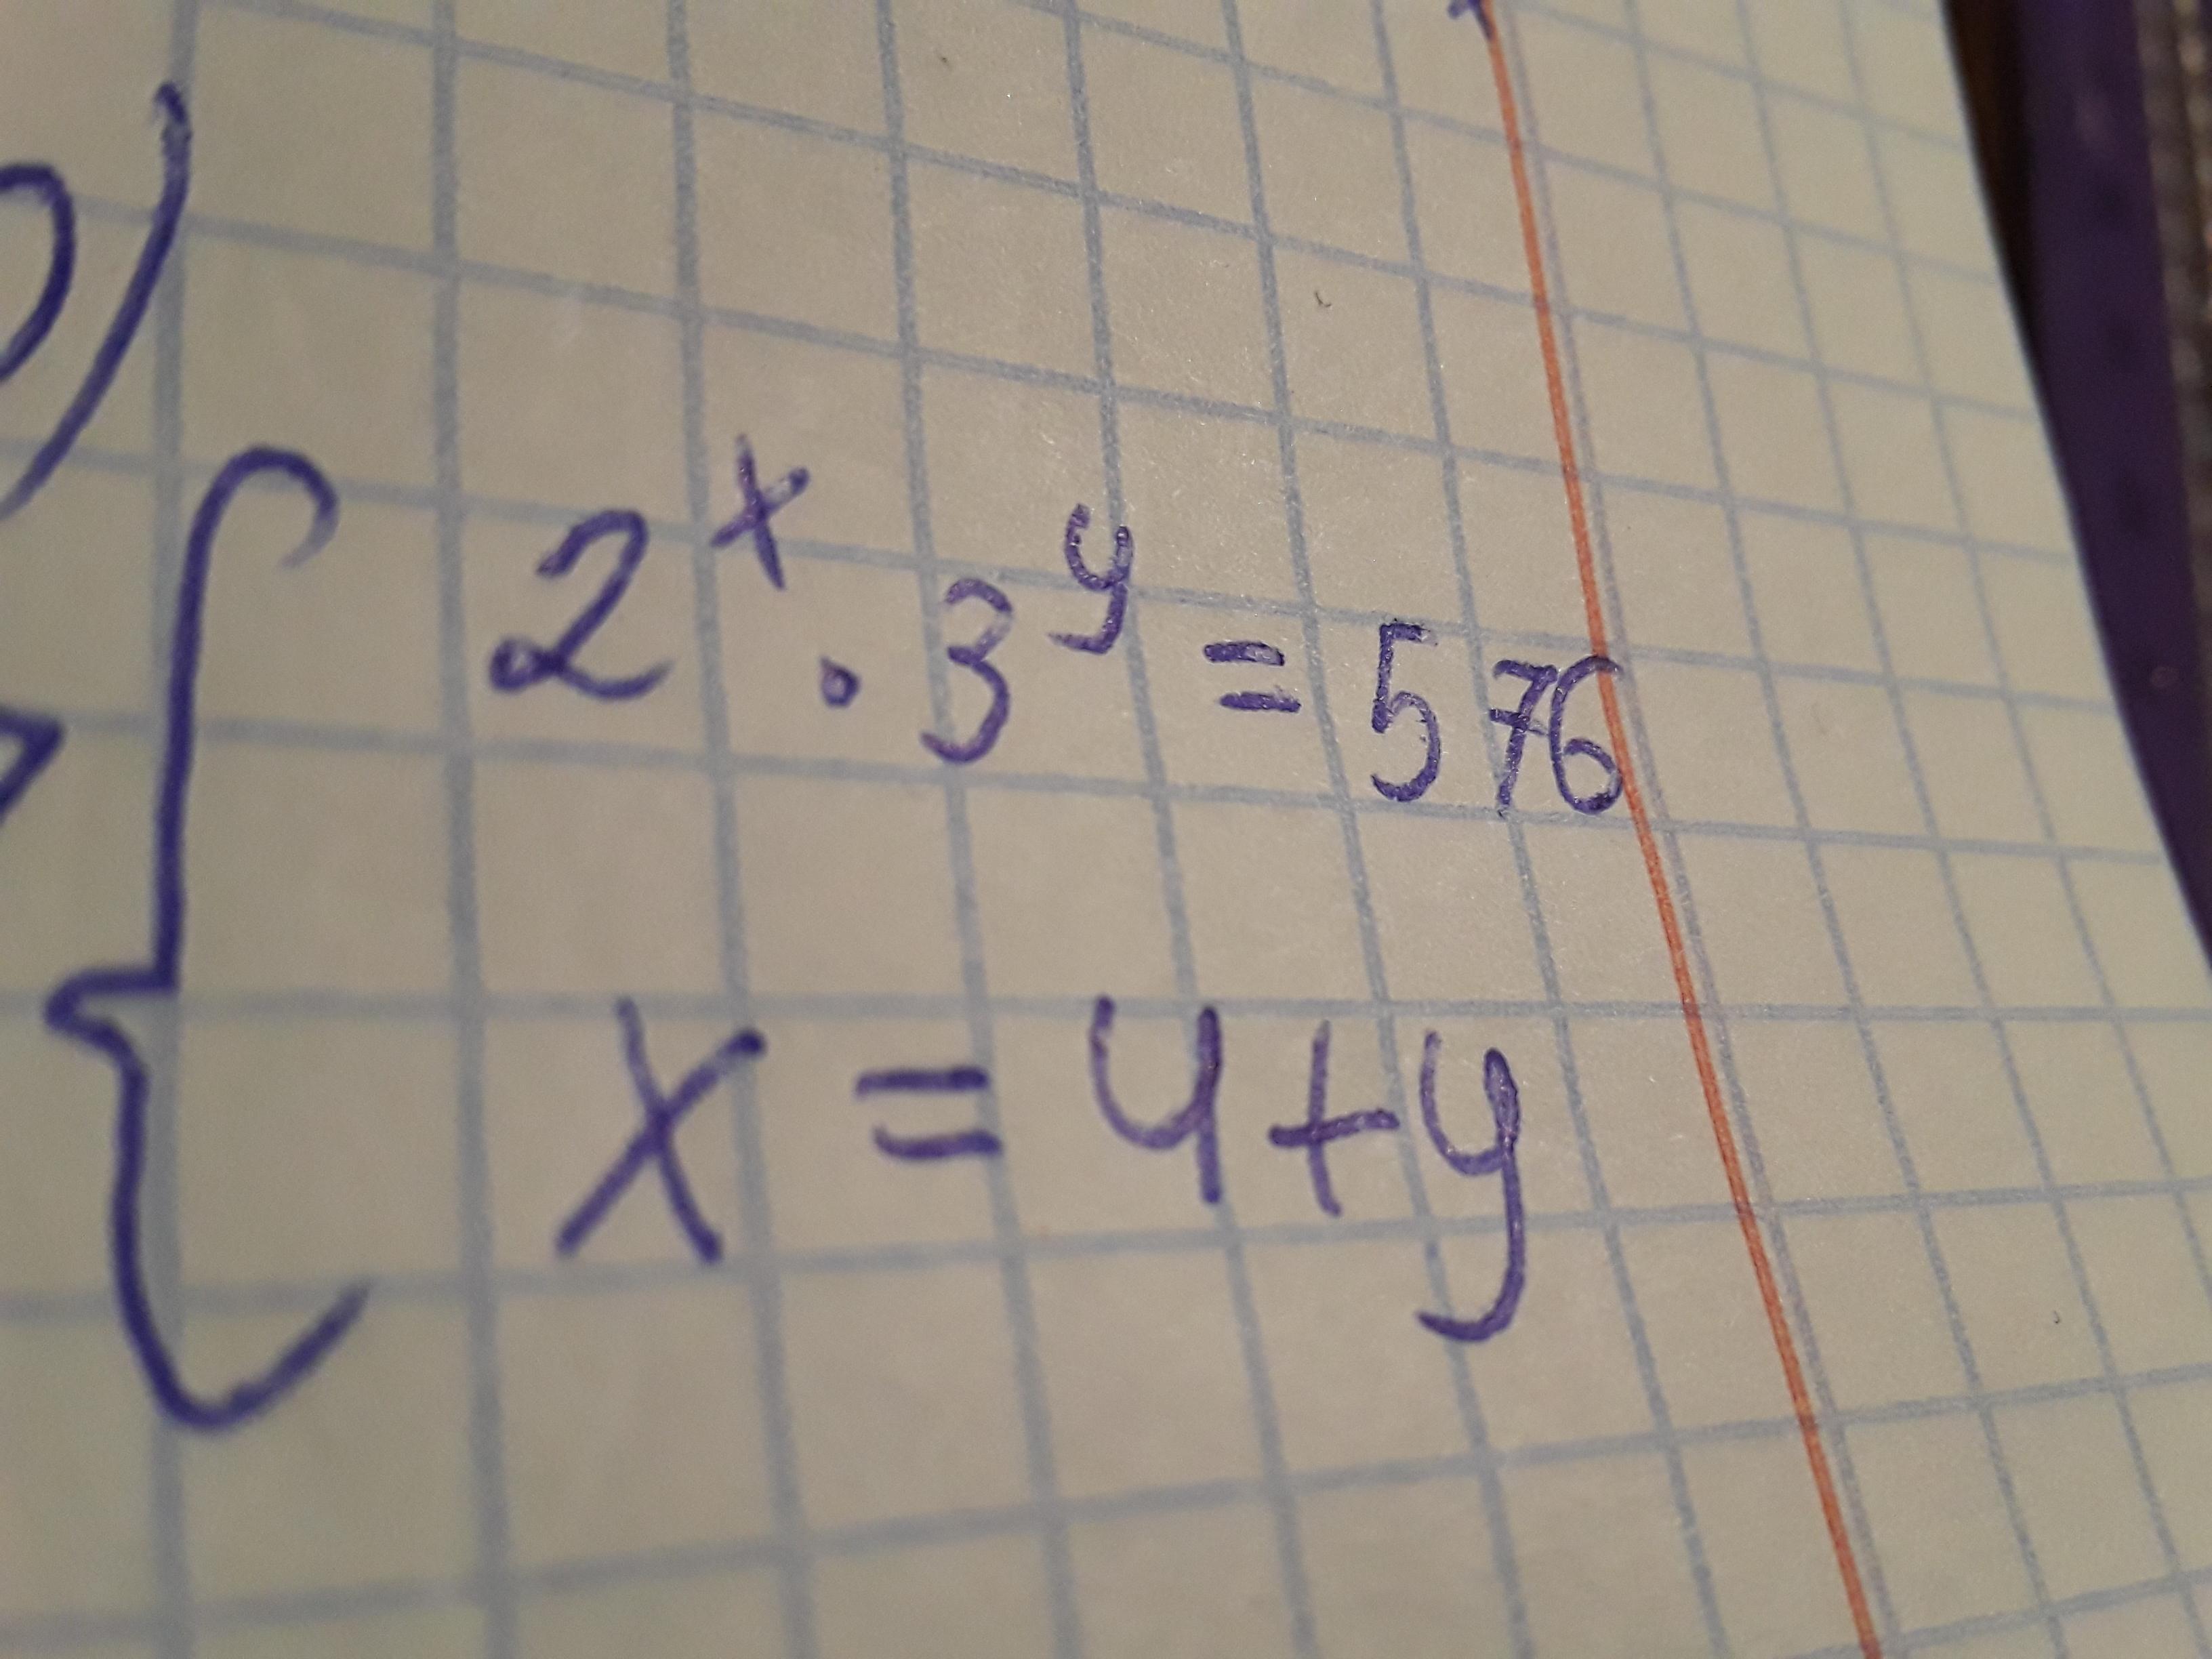 2^x · 3^y = 576
x = 4 + y